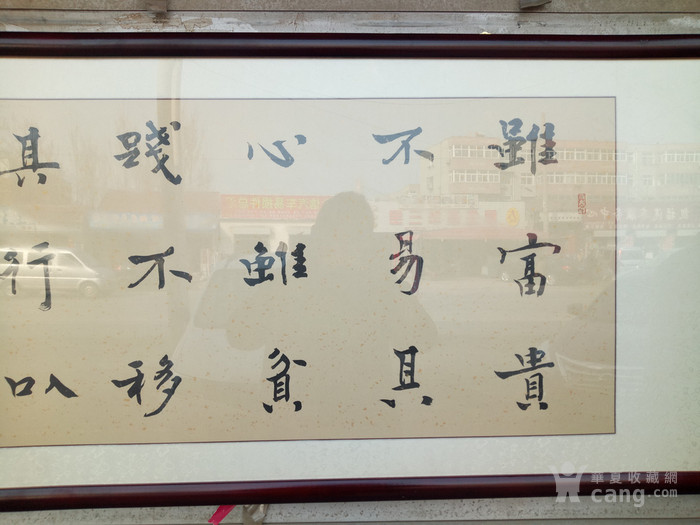 雖富貴
不易其
心雖貧
踐不移
其行以
華夏收藏網
cang.com